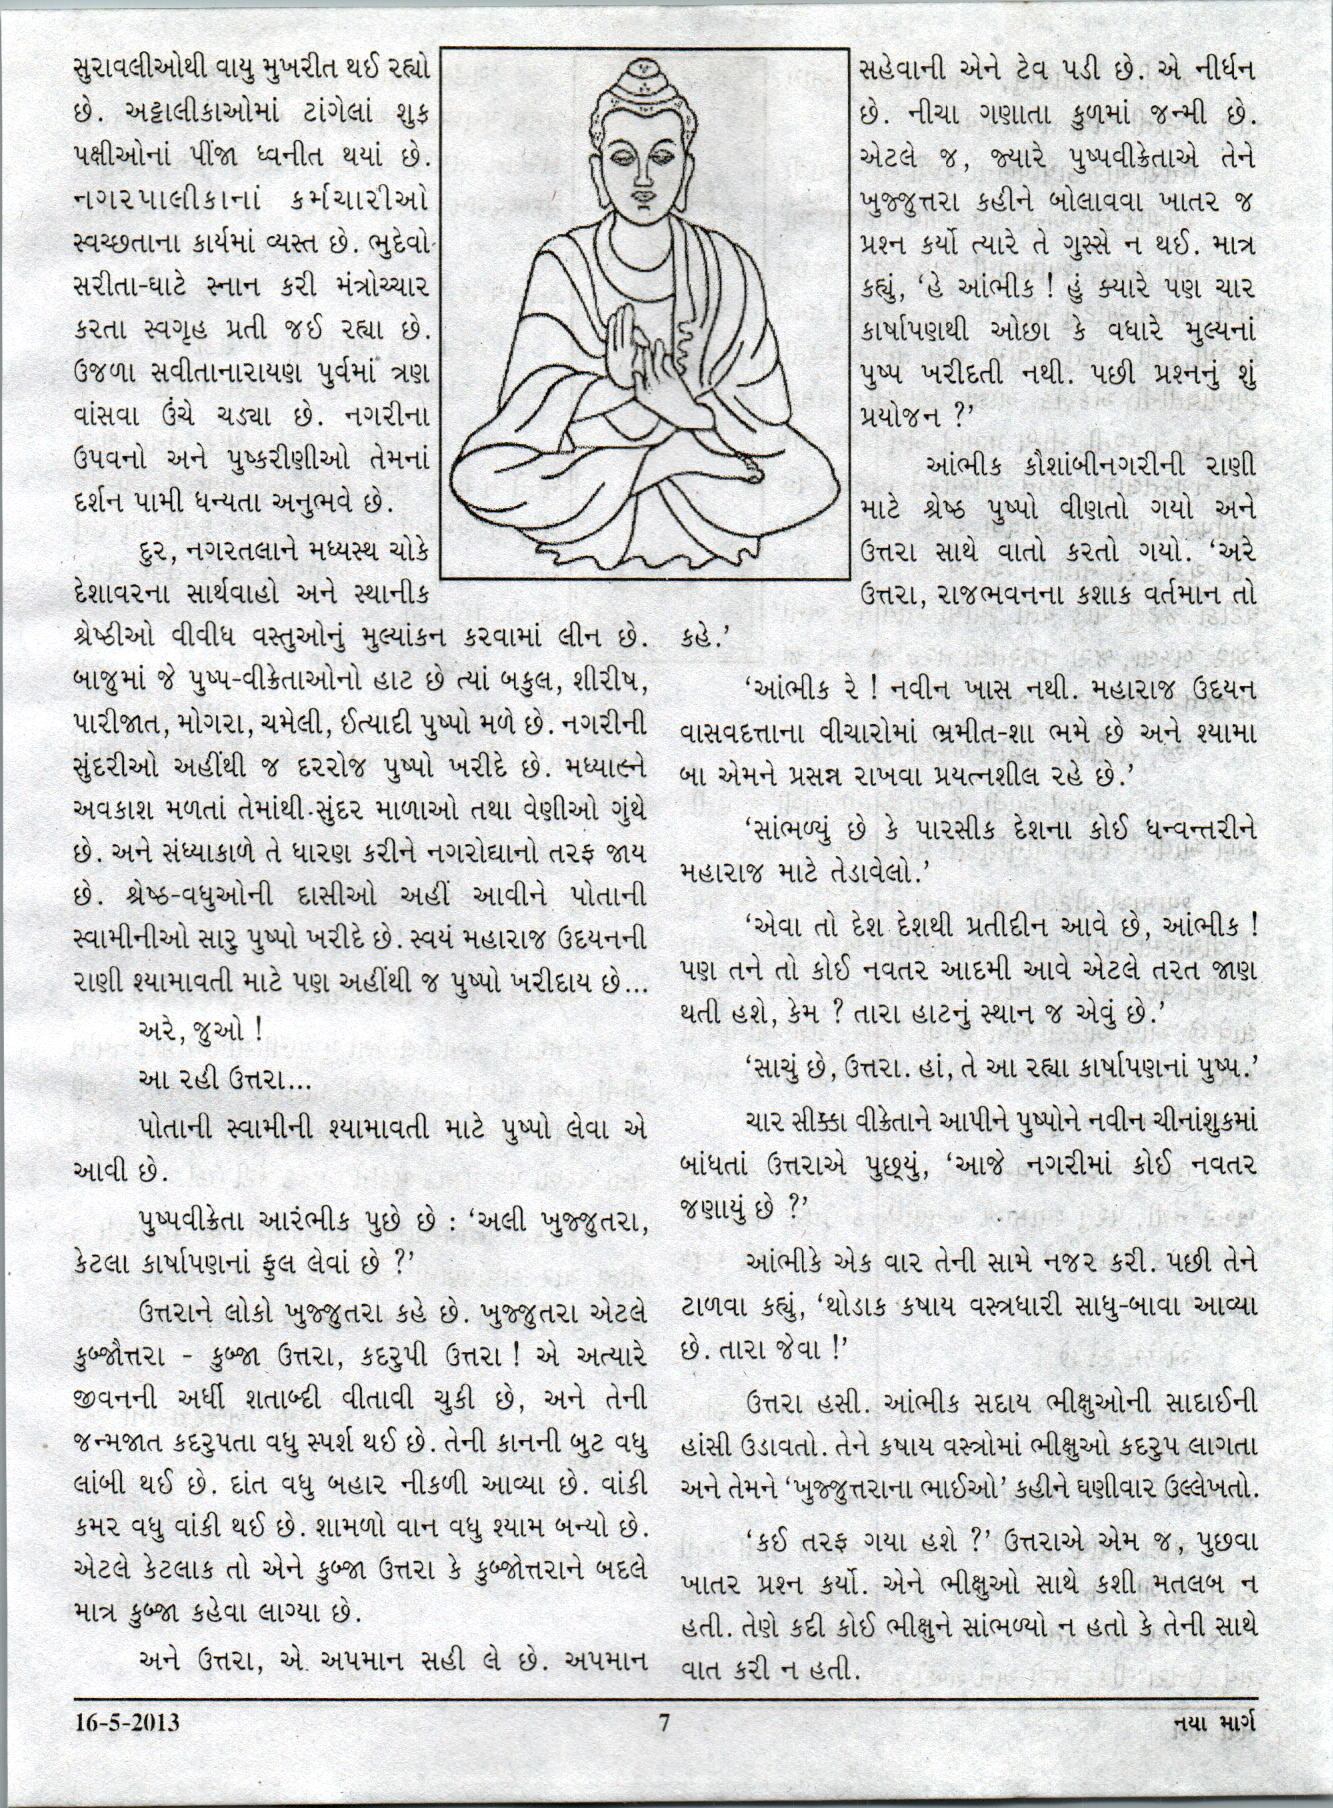 સુરાવલીઓથી વાયુ મુખરીત થઈ રહ્યો
છે. અટ્ટાલીકાઓમાં ટાંગેલાં શુક
પક્ષીઓનાં પીંજા ધ્વનીત થયાં છે.
નગરપાલીકાનાં કર્મચારીઓ
સ્વચ્છતાના કાર્યમાં વ્યસ્ત છે. ભુદેવો
સરીતા-ઘાટે સ્નાન કરી મંત્રોચ્ચાર
કરતા સ્વગૃહ પ્રતી જઈ રહ્યા છે.
ઉજળા સવીતાનારાયણ પુર્વમાં ત્રણ
વાંસવા ઉંચે ચડ્યા છે. નગરીના
ઉપવનો અને પુષ્કરીણીઓ તેમનાં
દર્શન પામી ધન્યતા અનુભવે છે.
દુર, નગરતલાને મધ્યસ્થ ચોકે
દેશાવરના સાર્થવાહો અને સ્થાનીક
શ્રેષ્ઠીઓ વીવીધ વસ્તુઓનું મુલ્યાંકન કરવામાં લીન છે.
બાજુમાં જે પુષ્પ-વીક્રેતાઓનો હાટ છે ત્યાં બકુલ, શીરીષ,
પારીજાત, મોગરા, ચમેલી, ઈત્યાદી પુષ્પો મળે છે. નગરીની
સુંદરીઓ અહીંથી જ દરરોજ પુષ્પો ખરીદે છે. મધ્યાહ્ને
અવકાશ મળતાં તેમાંથી સુંદર માળાઓ તથા વેણીઓ ગુંથે
છે. અને સંધ્યાકાળે તે ધારણ કરીને નગરોદ્યાનો તરફ જાય
છે. શ્રેષ્ઠ-વધુઓની દાસીઓ અહીં આવીને પોતાની
સ્વામીનીઓ સારુ પુષ્પો ખરીદે છે. સ્વયં મહારાજ ઉદયનની
રાણી શ્યામાવતી માટે પણ અહીંથી જ પુષ્પો ખરીદાય છે...
અરે, જુઓ !
આ રહી ઉત્તરા...
પોતાની સ્વામીની શ્યામાવતી માટે પુષ્પો લેવા એ
આવી છે.
પુષ્પવીક્રેતા આરંભીક પુછે છે : ‘અલી ખુજ્જુતરા,
કેટલા કાર્ષાપણનાં ફુલ લેવાં છે ?’
ઉત્તરાને લોકો ખુજ્જુતરા કહે છે. ખુજ્જુતરા એટલે
કુબ્જૌત્તરા - કુબ્જા ઉત્તરા, કદરુપી ઉત્તરા ! એ અત્યારે
જીવનની અર્ધી શતાબ્દી વીતાવી ચુકી છે, અને તેની
જન્મજાત કદરુપતા વધુ સ્પર્શ થઈ છે. તેની કાનની બુટ વધુ
લાંબી થઈ છે. દાંત વધુ બહાર નીકળી આવ્યા છે. વાંકી
કમર વધુ વાંકી થઈ છે. શામળો વાન વધુ શ્યામ બન્યો છે.
એટલે કેટલાક તો એને કુબ્જા ઉત્તરા કે કુબ્જોત્તરાને બદલે
માત્ર કુબ્જા કહેવા લાગ્યા છે.
અને ઉત્તરા, એ અપમાન સહી લે છે. અપમાન
સહેવાની એને ટેવ પડી છે. એ નીર્ધન
છે. નીચા ગણાતા કુળમાં જન્મી છે.
એટલે જ, જ્યારે પુષ્પવીક્રેતાએ તેને
ખુજ્જુત્તરા કહીને બોલાવવા ખાતર જ
પ્રશ્ન કર્યો ત્યારે તે ગુસ્સે ન થઈ. માત્ર
કહ્યું, ‘હે આંભીક ! હું ક્યારે પણ ચાર
કાર્ષાપણથી ઓછા કે વધારે મુલ્યનાં
પુષ્પ ખરીદતી નથી. પછી પ્રશ્નનું શું
પ્રયોજન ?’
આંભીક કૌશાંબીનગરીની રાણી
માટે શ્રેષ્ઠ પુષ્પો વીણતો ગયો અને
ઉત્તરા સાથે વાતો કરતો ગયો. ‘અરે
ઉત્તરા, રાજભવનના કશાક વર્તમાન તો
કહે.’
‘આંભીક રે ! નવીન ખાસ નથી. મહારાજ ઉદયન
વાસવદત્તાના વીચારોમાં ભ્રમીત-શા ભમે છે અને શ્યામા
બા એમને પ્રસન્ન રાખવા પ્રયત્નશીલ રહે છે.’
‘સાંભળ્યું છે કે પારસીક દેશના કોઈ ધન્વન્તરીને
મહારાજ માટે તેડાવેલો.’
‘એવા તો દેશ દેશથી પ્રતીદીન આવે છે, આંભીક !
પણ તને તો કોઈ નવતર આદમી આવે એટલે તરત જાણ
થતી હશે, કેમ ? તારા હાટનું સ્થાન જ એવું છે.’
‘સાચું છે, ઉત્તરા. હાં, તે આ રહ્યા કાર્ષાપણનાં પુષ્પ.’
ચાર સીક્કા વીક્રેતાને આપીને પુષ્પોને નવીન ચીનાંશુકમાં
બાંધતાં ઉત્તરાએ પુછ્યું, ‘આજે નગરીમાં કોઈ નવતર
જણાયું છે ?’
આંભીકે એક વાર તેની સામે નજર કરી. પછી તેને
ટાળવા કહ્યું, ‘થોડાક કષાય વસ્ત્રધારી સાધુ-બાવા આવ્યા
છે. તારા જેવા !’
ઉત્તરા હસી. આંભીક સદાય ભીક્ષુઓની સાદાઈની
હાંસી ઉડાવતો. તેને કષાય વસ્ત્રોમાં ભીક્ષુઓ કદરુપ લાગતા
અને તેમને ‘ખુજ્જુત્તરાના ભાઈઓ’ કહીને ઘણીવાર ઉલ્લેખતો.
‘કઈ તરફ ગયા હશે ?’ ઉત્તરાએ એમ જ, પુછવા
ખાતર પ્રશ્ન કર્યો. એને ભીક્ષુઓ સાથે કશી મતલબ ન
હતી. તેણે કદી કોઈ ભીક્ષુને સાંભળ્યો ન હતો કે તેની સાથે
વાત કરી ન હતી.
16-5-2013
7
નયા માર્ગ